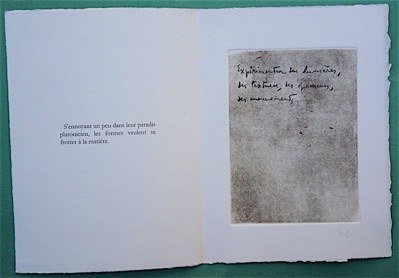 S'ennuyant un peu dans leur paradis
platonicien, les formes veulent se
frotter à la matière.
Expérimenter des lumières,
des textures, des
des mouvements,